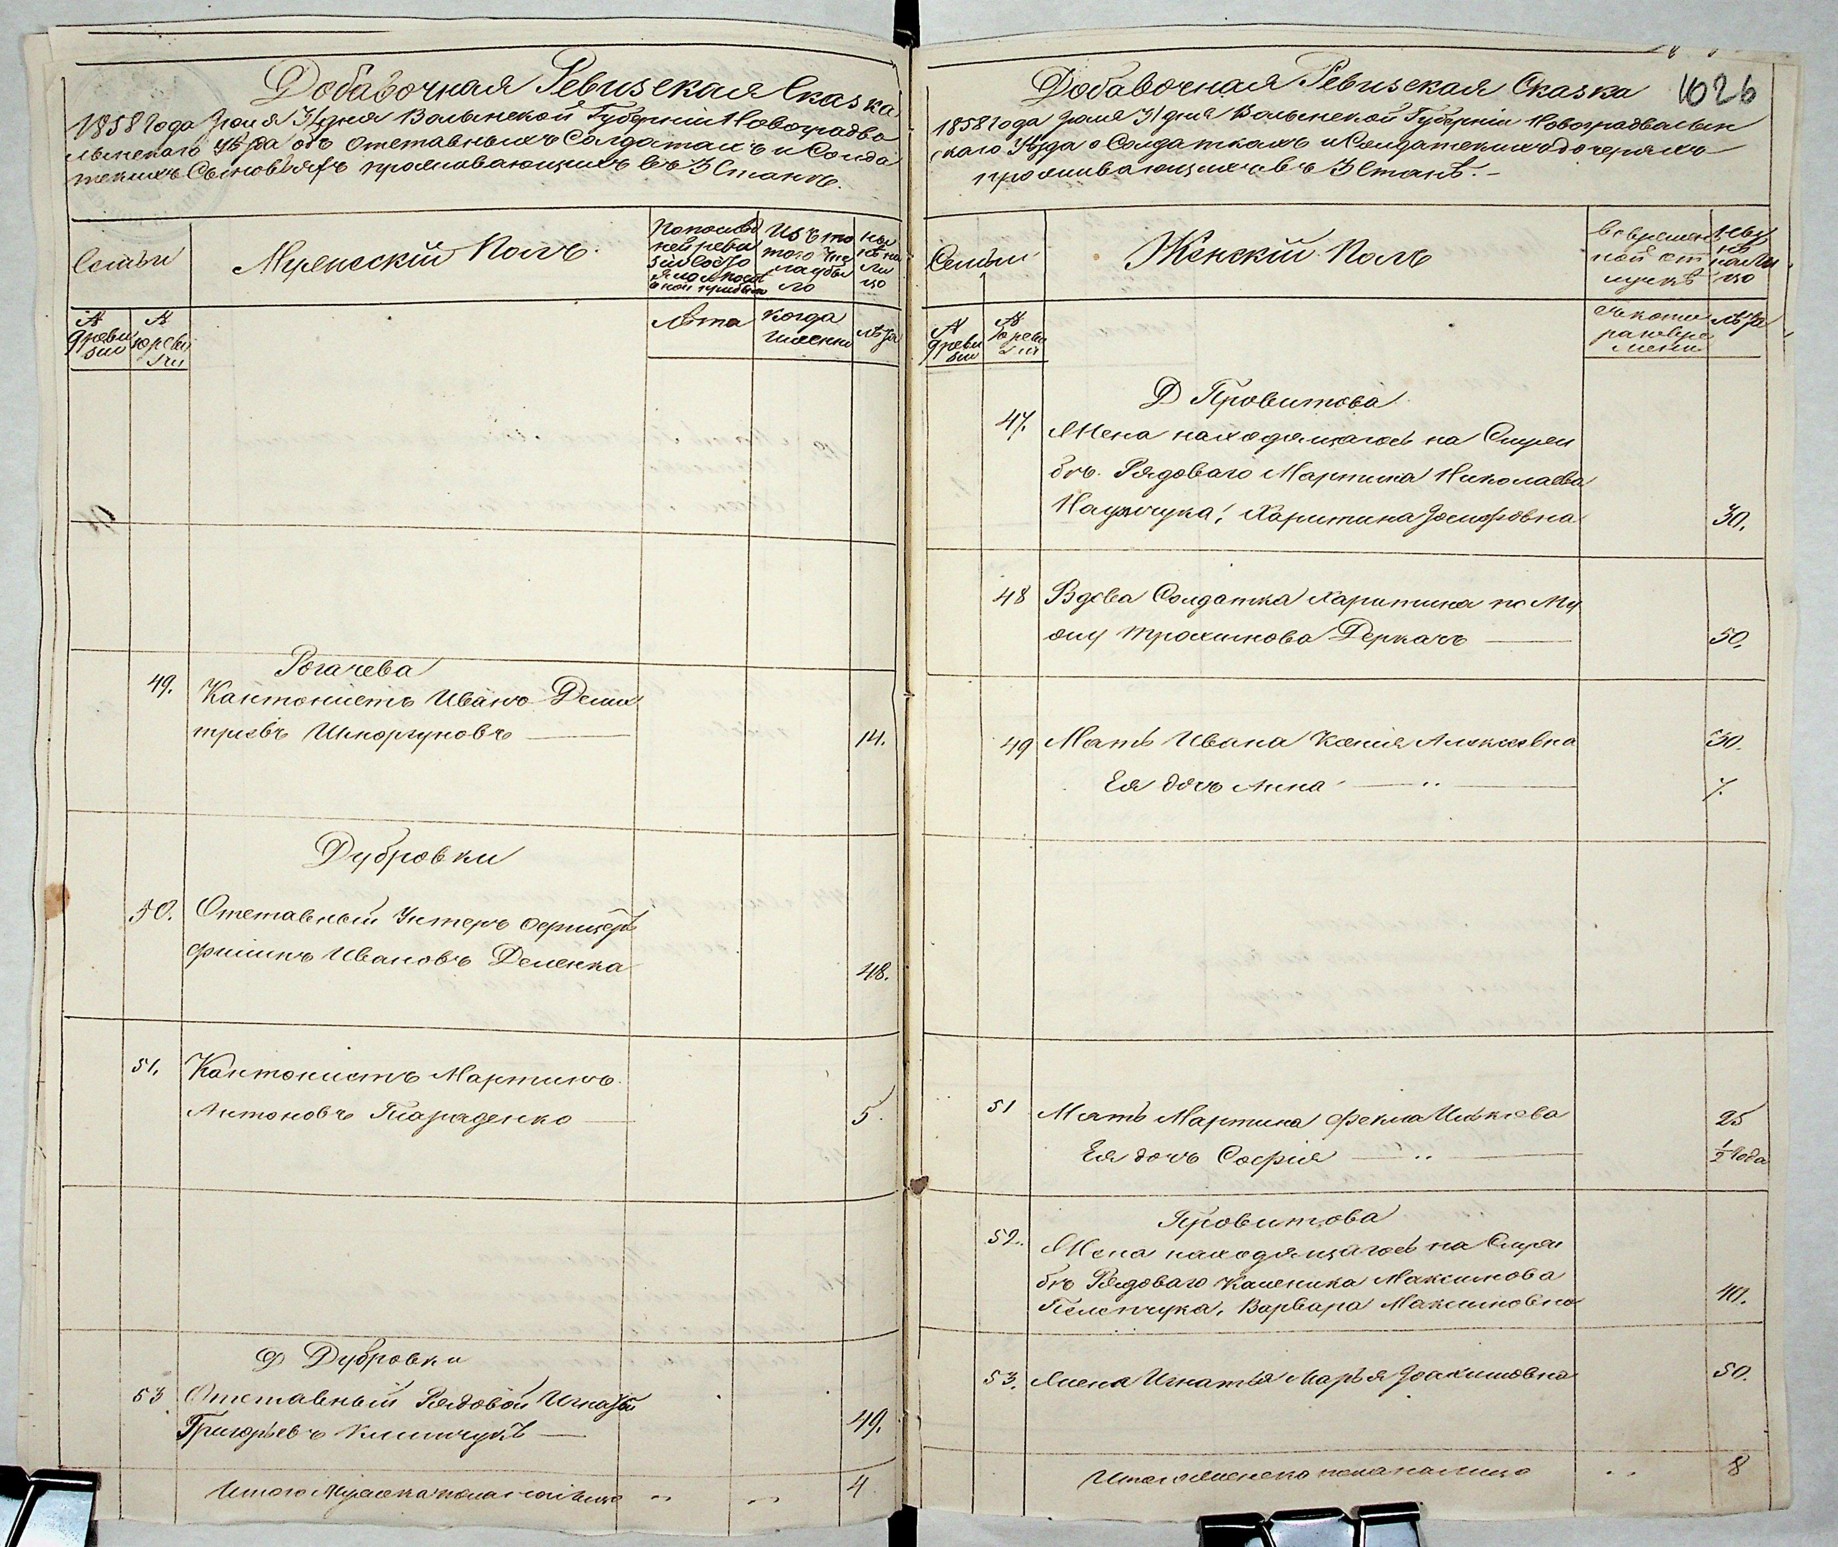 Добавочная Ревизская Сказка
1858 года Июля 31 дня Волынской Губерніи Новоградво
лынскаго Уѣзда объ отставныхъ Солдатахъ и Солда
тскихъ Сыновьяхъ проживающихъ въ 3 Станѣ.
Семьи
Мужескій Полъ.
По послѣд
ней реви
зіи состо
яло
Изъ то
того чис
ла убы
ло
ны
нѣ на
ли
цо
№
9 реви
зіи
№
10 реви
зіи
Лѣта
когда
именно
лѣта
Рогачева
49.
Кантонистъ Иванъ Дими
тріевъ Шкоргуновъ
14.
Дубровки
50.
Отставный Унтеръ офицеръ
Филипъ Ивановъ Деленка
48.
51.
Кантонистъ Мартинъ
Антоновъ Тараденко
5.
Д Дубровки
53
Отставный Рядовой Игнатій
Григорьевъ Климчукъ
49.
Итого Мужеска пола на лицо
4
Добавочная Ревизская Сказка
1026
1858 года Июля 31 дня Волынской Губерніи Новоградволын
скаго Уѣзда о Солдаткахъ и Солдатскихъ дочеряхъ
проживающихъ въ 3 Станѣ.
Семьи
Женскій Полъ
Во времен
ной от
лучкѣ
ны
нѣ
на ли
цо
№
9 реви
зіи
№
10 реви
зіи
Съ кото
раго вре
мени
лѣта
Д Провитова
47.
Жена находящагось на Служ
бѣ Рядоваго Мартина Николаева
Наумчука, Харитина Іосифовна
30.
48
Вдова Солдатка Харитина по Му
жу Трохимова Деркачъ
50.
49
Мать Ивана Ксенія Алексеевна
30.
Ея дочь Анна
7.
51
Мать Мартина Фекла Илькова
25
Ея дочь Софія
1/2 года
Провитова
52.
Жена находящагось на Служ
бѣ Рядоваго Каленика Максимова
Пелепчука, Варвара Максимовна
40.
53.
Жена Игнатія Марья Іоакимовна
50.
Итого женска пола на лицо
8